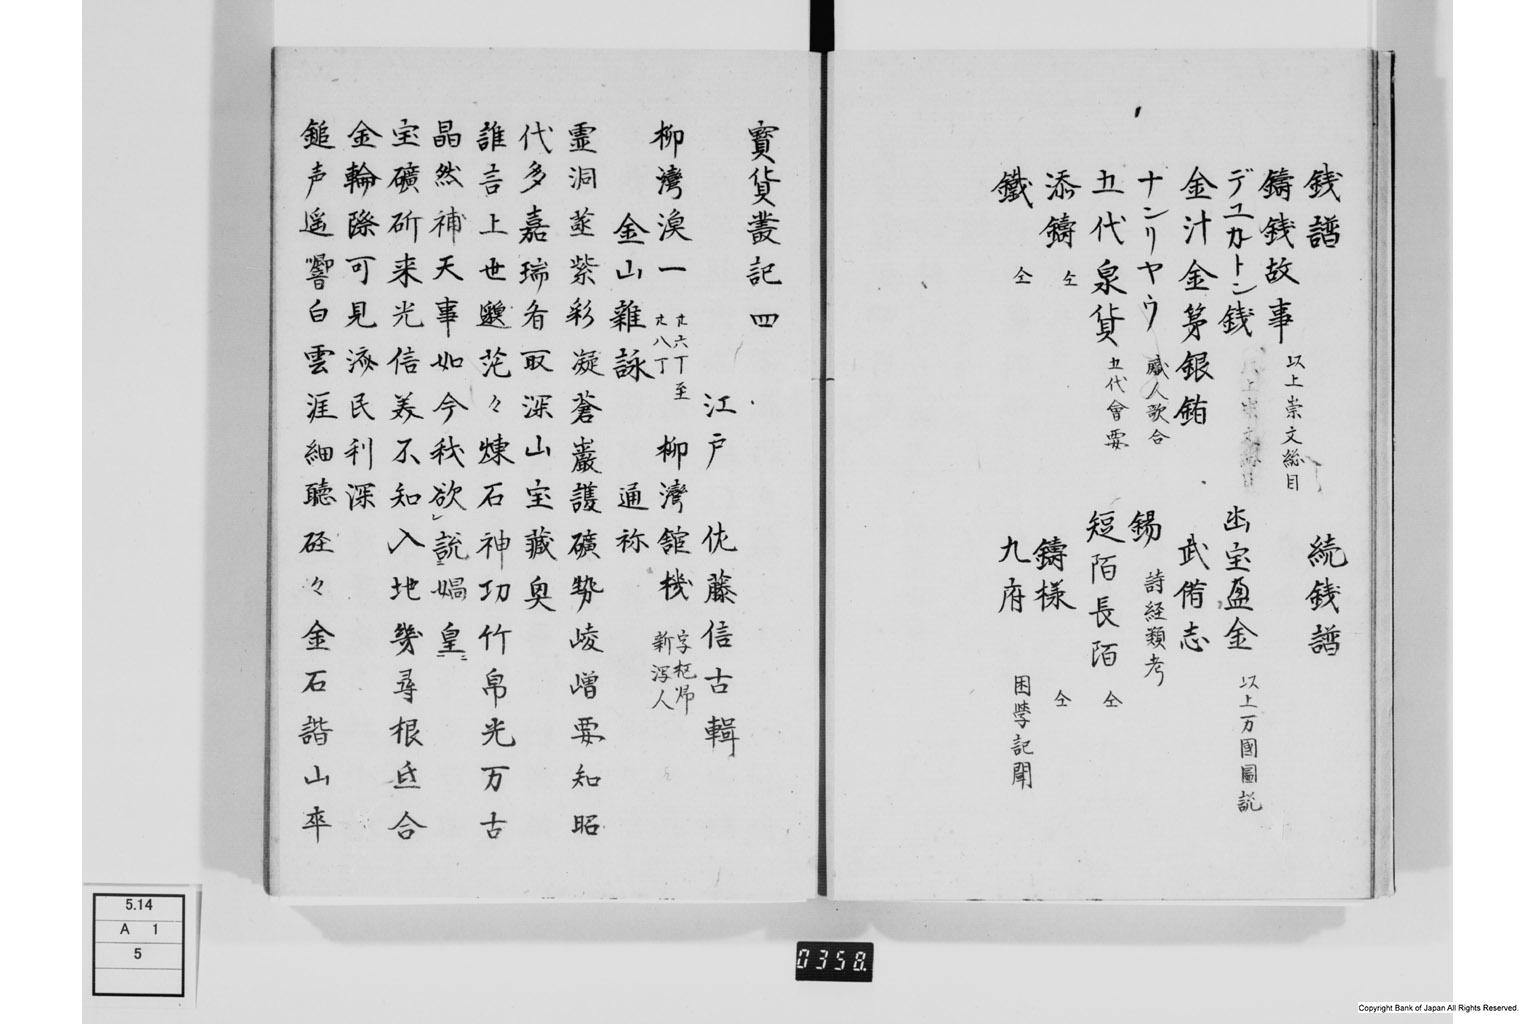 銭譜　続銭譜
鋳銭故事　以上崇文総目
デユカトン銭　出宝盈金　以上万國圖説
金汁金茅銀銪　武備志
ナンリヤウ　職人歌合　錫　詩経類考
五代泉貨　五代會要　短陌長陌　仝
添鑄　仝　鑄様　仝
鐵　仝　九府　困学記聞
寶貨叢記四
江戸　佐藤信古輯
柳湾漁一　廿六丁至廿八丁　柳湾舘機　字枢卿新潟人
金山雜詠　通称
霊洞蓝紫彩凝蒼巌護礦勢崚嶒要知昭
代多嘉瑞看取深山宝蔵奥
誰言上世邈茫々煉石神功竹帛光万古
晶然補天事如今我欲説媧皇
宝礦斫来光信美不知入地幾尋根至合
金輪際可見済民利深
鎚声遥響白雲涯細聴硁々金石諧山卒
5.14
A 1
5
0358
Copyright Bank of Japan All Rights Reserved.